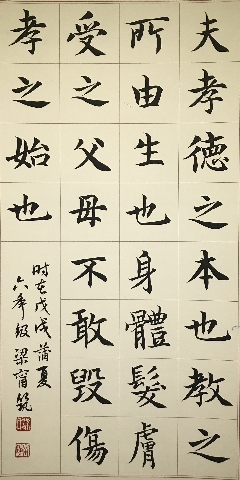 夫孝德之本也教之
所由生也身體髮膚
受之父母不敢毀傷
孝之始也
时在戊戌蒲夏
六年级梁甯筑